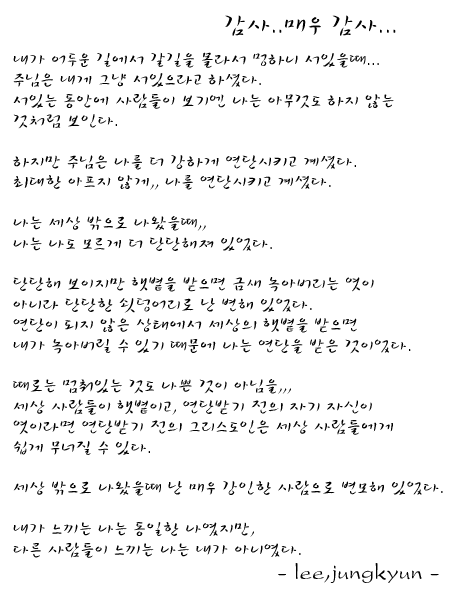 감사..매우 감사...
내가 어두운 길에서 갈길을 몰라서 멍하니 서있을때...
주님은 내게 그냥 서있으라고 하셨다.
서있는 동안에 사람들이 보기엔 나는 아무것도 하지 않는
것처럼 보인다.
하지만 주님은 나를 더 강하게 연단시키고 계셨다.
최대한 아프지 않게,, 나를 연단시키고 계셨다.
나는 세상 밖으로 나왔을때,,
나는 나도 모르게 더 단단해져 있었다.
단단해 보이지만 햇볕을 받으면 금새 녹아버리는 엿이
아니라 단단한 쇳덩어리로 난 변해 있었다.
연단이 되지 않은 상태에서 세상의 햇볕을 받으면
내가 녹아버릴 수 있기 때문에 나는 연단을 받은 것이었다.
때로는 멈춰있는 것도 나쁜 것이 아님을,,,
세상 사람들이 햇볕이고, 연단받기 전의 자기 자신이
엿이라면 연단받기 전의 그리스도인은 세상 사람들에게
쉽게 무너질 수 있다.
세상 밖으로 나왔을때 난 매우 강인한 사람으로 변모해 있었다.
내가 느끼는 나는 동일한 나였지만,
다른 사람들이 느끼는 나는 내가 아니였다.
- lee,jungkyun -